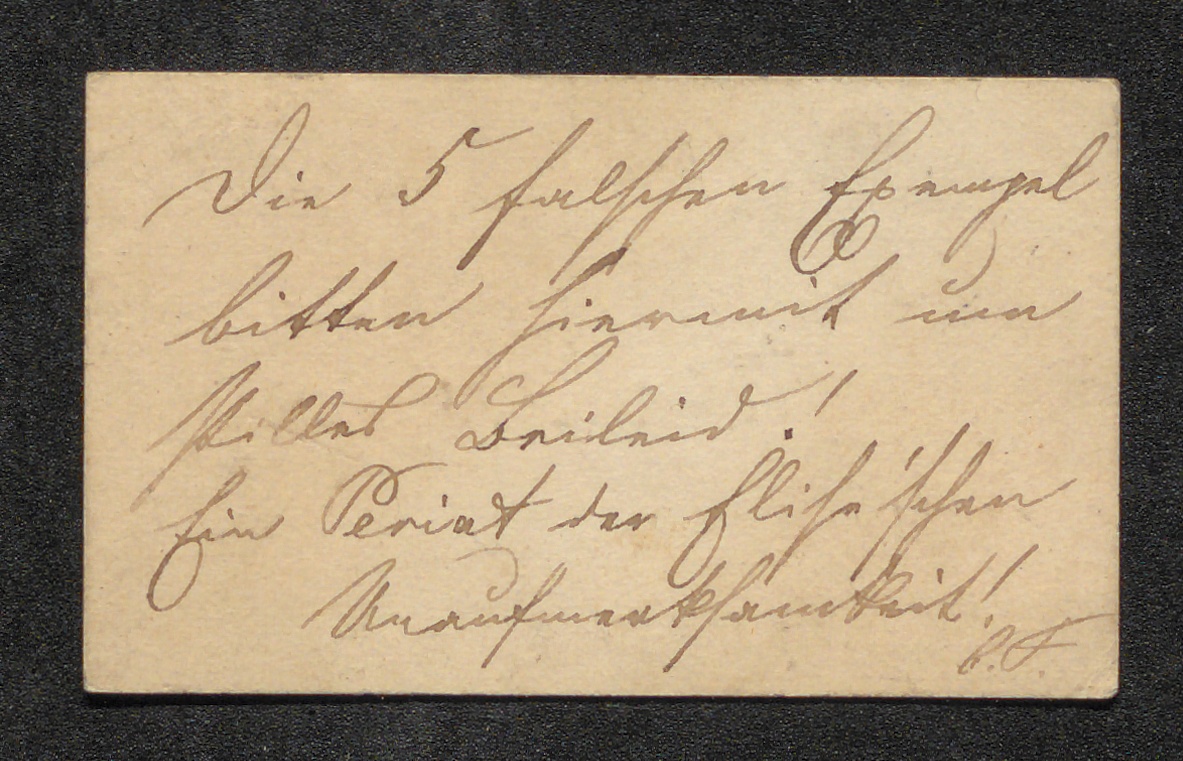 Die 5 falschen Exempel
bitten hiermit um
stilles Beileid!
Ein Periat der Elise'schen
Unaufmerksamkeit!